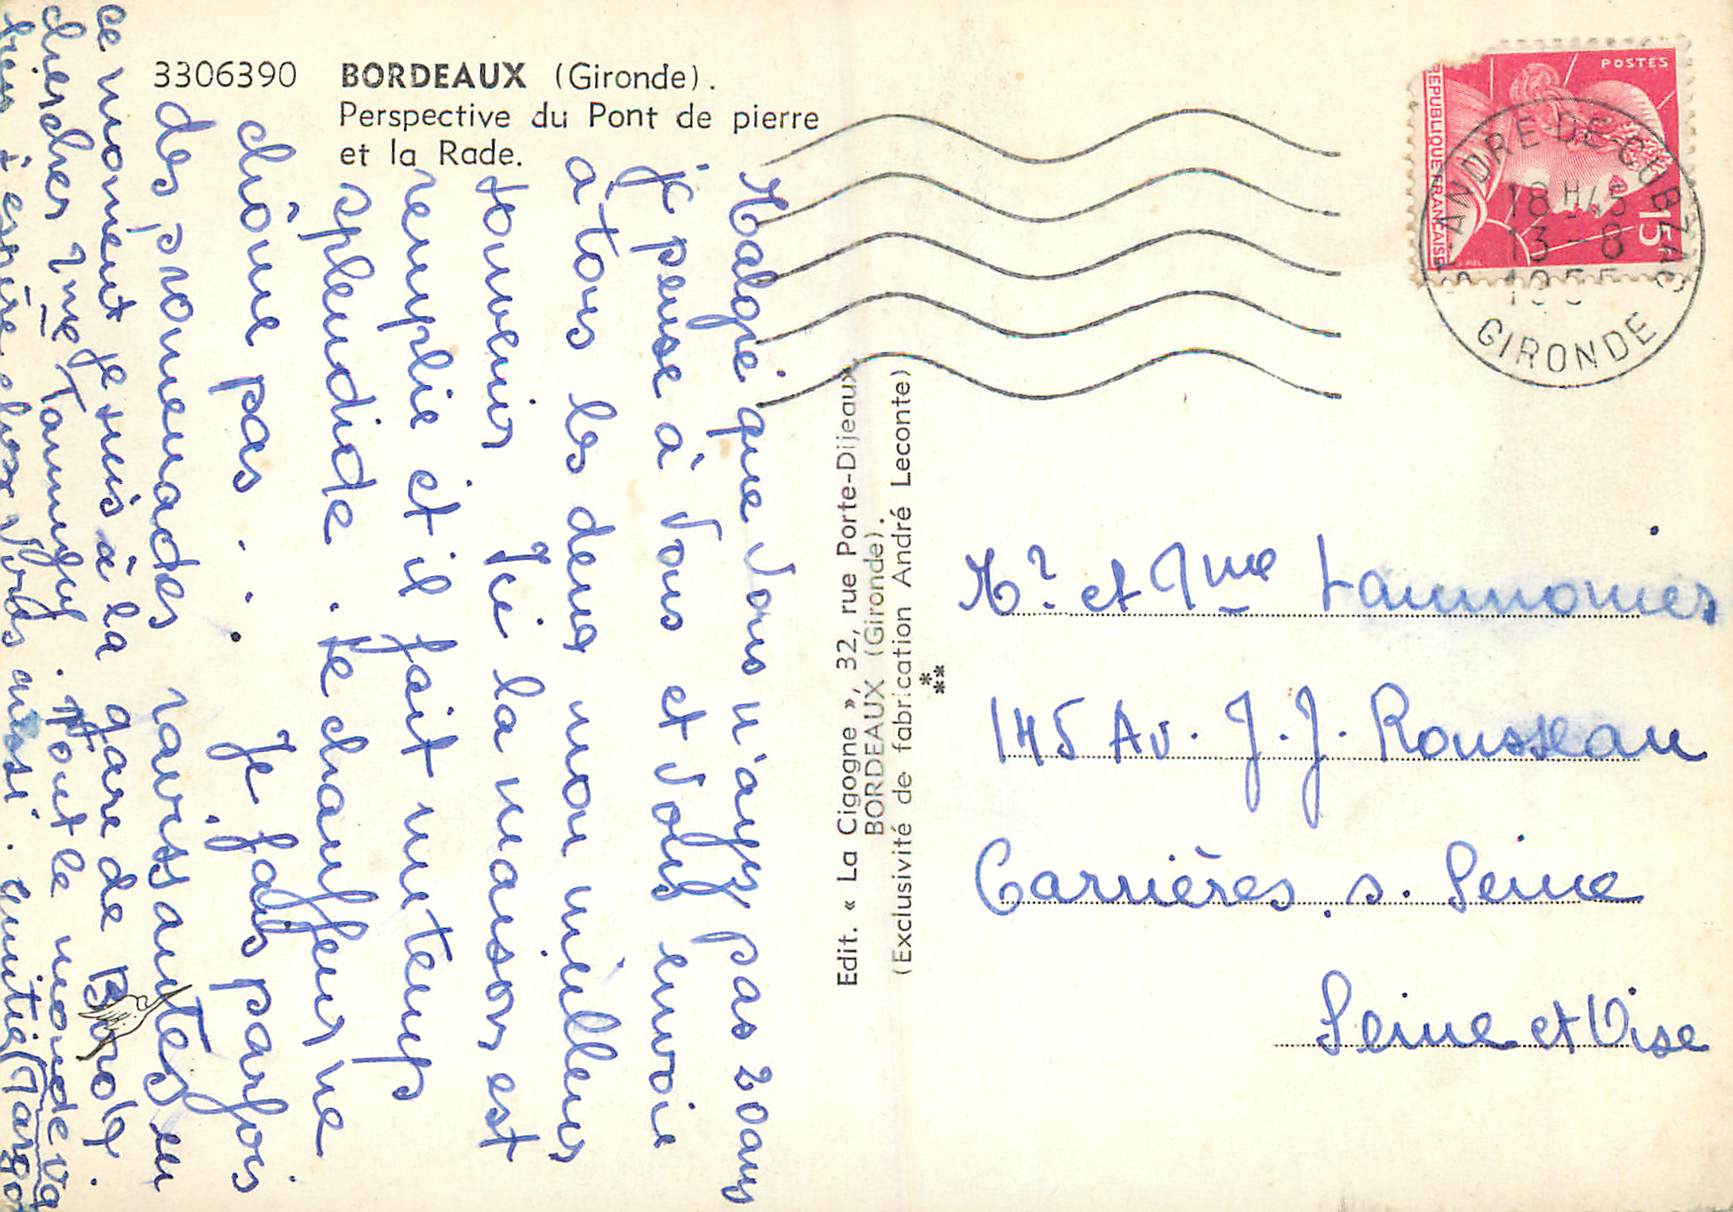 3306390 BORDEAUX (Gironde).
Perspective du Pont de pierre
et la Rade.
Malgré que vous n'ayez pas 20 ans
je pense à vous et vous envoie
à tous les deux mon meilleur
souvenir. Ici la maison est
remplie et il fait un temps
splendide. Le chauffeur ne
chôme pas... Je fais parfois
des promenades ravissantes en
ce moment je suis à la gare de
chercher Mme . Tout le monde va
bien j'espère chez vous aussi. Amitiés
Edit. « La Cigogne », 32, rue Porte-Dijeaux
BORDEAUX (Gironde).
(Exclusivité de fabrication André Leconte)
POSTES
REPUBLIQUE FRANÇAISE
15
ANDRE-DE-CUBZAC
18H45
13-8
1955
GIRONDE
Mr et Mme Laumonier
145 Av. J.J. Rousseau
Carrières s. Seine
Seine et Oise